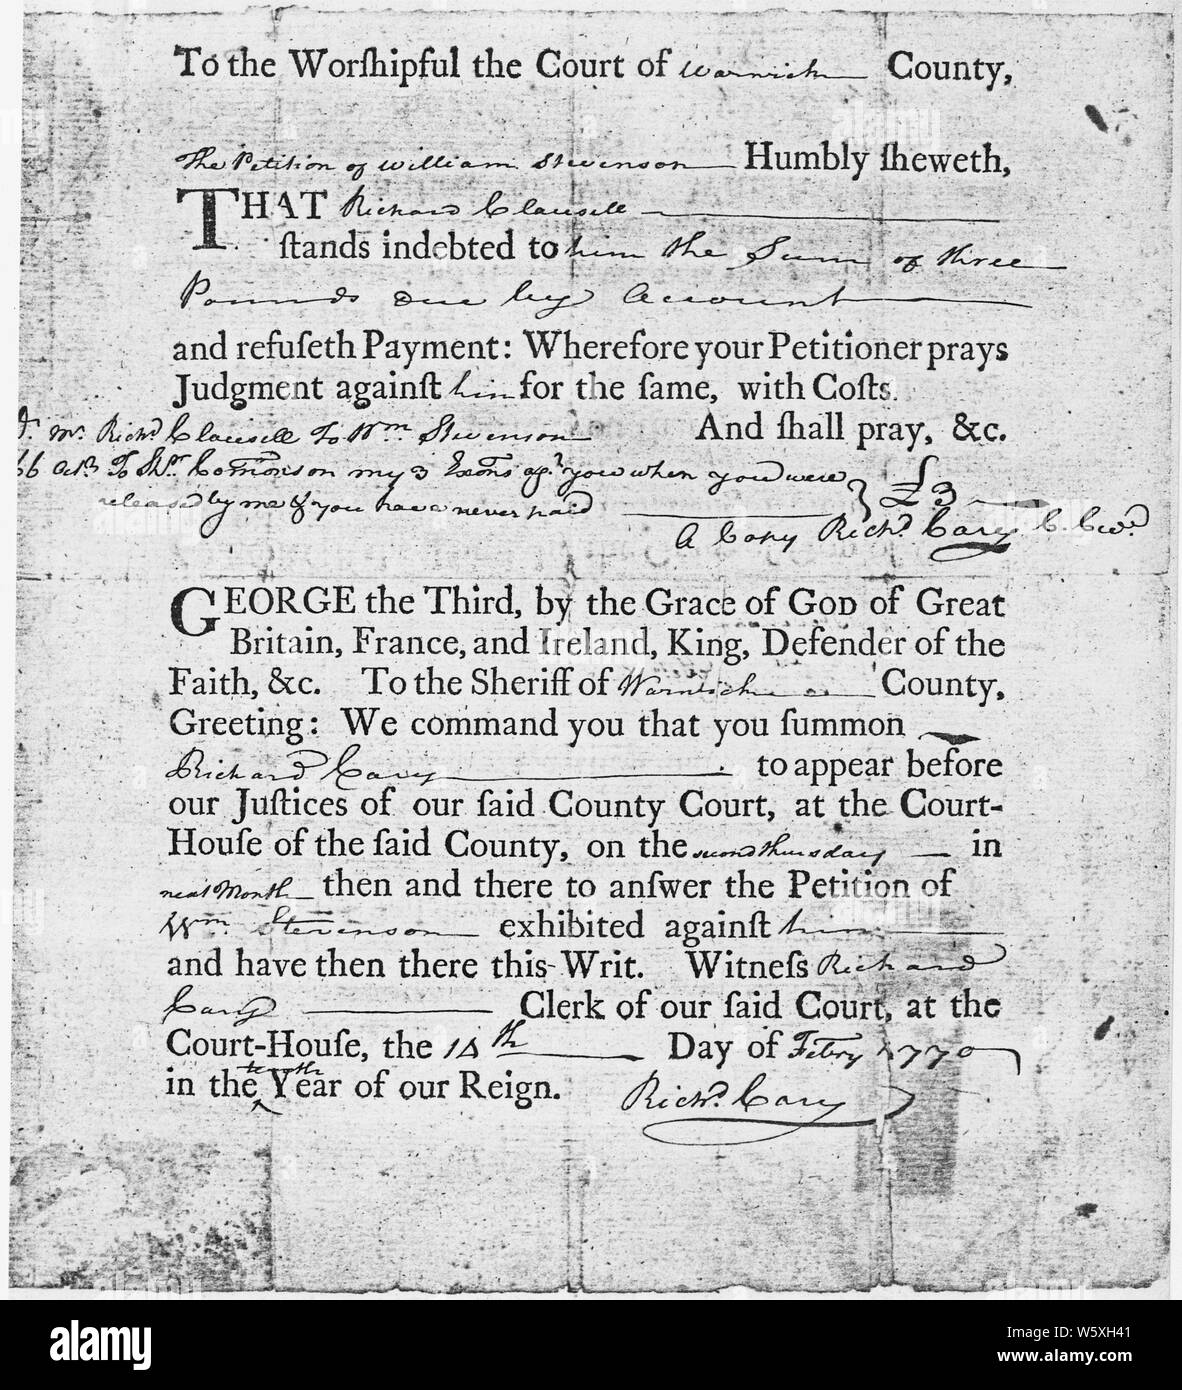 To the Worſhipful the Court of Warwick County,
The Petition of William Stevenson Humbly ſheweth,
THAT Richard Clausell
ſtands indebted to him the Sum of three
Pounds due by Account
and refuſeth Payment: Wherefore your Petitioner prays
Judgment againſt him for the ſame, with Coſts.
And ſhall pray, &c.
Dr. Mr. Richd Clausell To Wm Stevenson
66 To my 3 you when you were
released by me & you have never paid } £3
A Copy Richd. Cary C. Cwd.
GEORGE the Third, by the Grace of GOD of Great
Britain, France, and Ireland, King, Defender of the
Faith, &c. To the Sheriff of Warwick County,
Greeting: We command you that you ſummon
Richard Cary to appear before
our Juſtices of our ſaid County Court, at the Court-
Houſe of the ſaid County, on the second thursday in
next Month then and there to anſwer the Petition of
Wm. Stevenson exhibited againſt him
and have then there this Writ. Witneſs Richard
Cary Clerk of our ſaid Court, at the
Court-Houſe, the 14th Day of Febry 1770
in the tenth Year of our Reign. Richd. Cary
alamy
Image ID: W5XH41
www.alamy.com